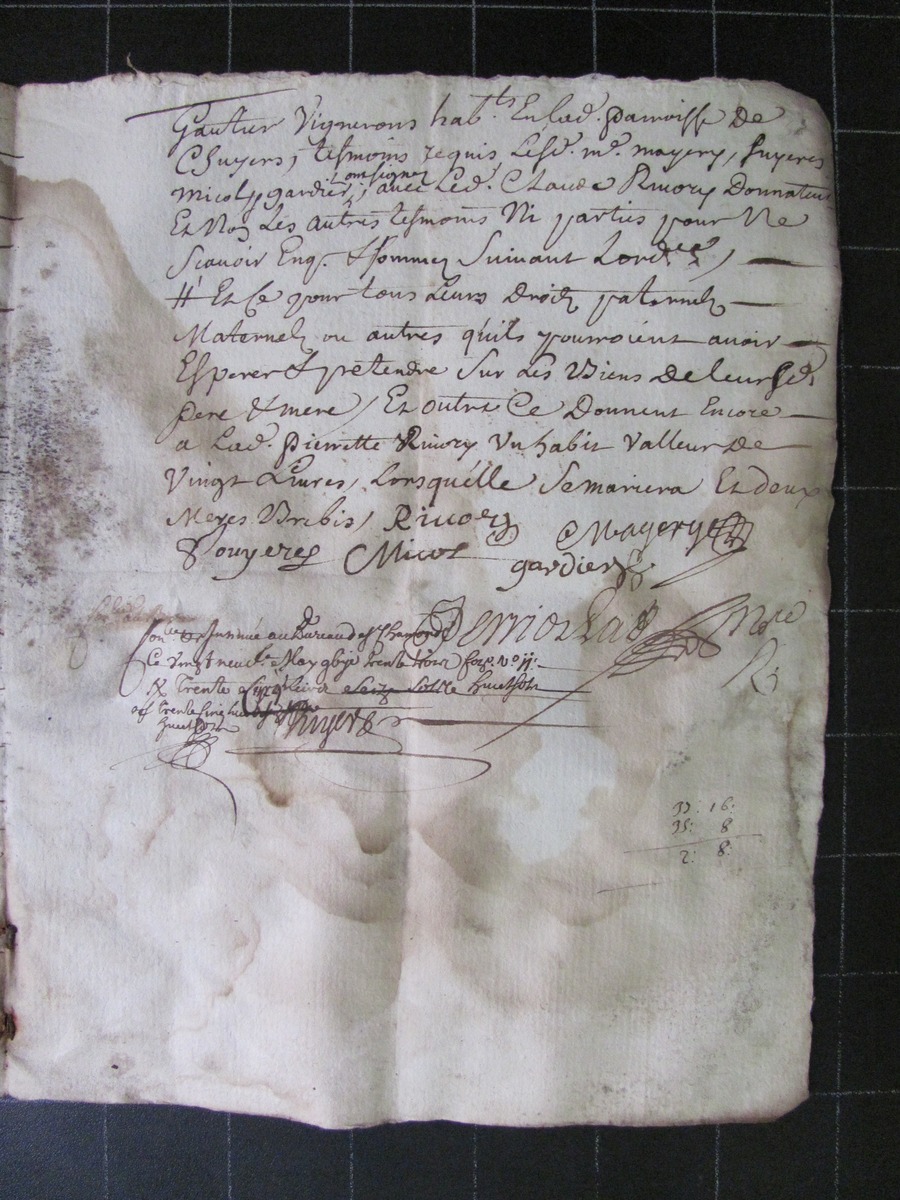 Gautier Vignerons hab.ts En lad. Parroisse De
Chuyers, tesmoins requis Lesd. mr. mayery, fuyeres
ont signez
Micol, gardier, avec Led. Claude Rivory Donnateur
Et Non Les autres tesmoins Ni parties pour Ne
Scavoir Enq. & sommez Suivant Lord.ce /
# Et Ce pour tous Leurs Droitz paternelz
Maternelz ou autres qu'ils pourroient avoir
Esperer & pretendre Sur Les Biens de leursd.
pere & mere / Et outre Ce Donnent Encore
a Lad. Pierrette Rivory Un habit Valleur de
Vingt Livres, Lorsqu'elle Se mariera Et deux
Meres Brebis / Rivory Mayery
fouyeres Micol gardier
au Bureau de St Chamond
Ce vingt neuf.e May trente trois
trente livres seize solz huit
35: 8
2: 8: